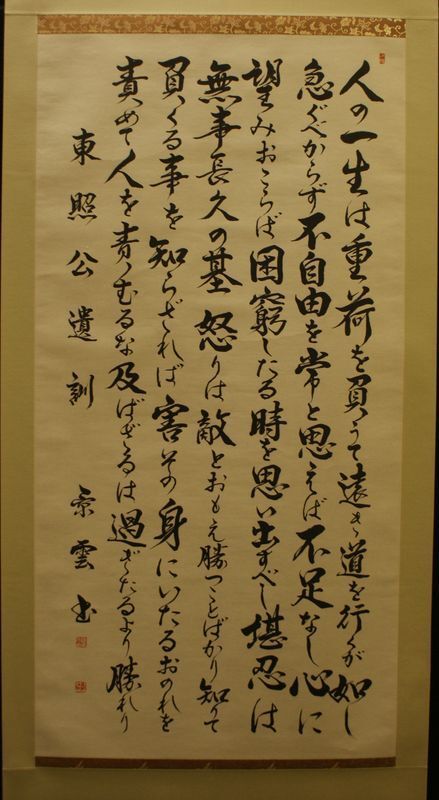 人の一生は重荷を負うて遠き道を行くが如し
急ぐべからず不自由を常と思えば不足なし心に
望みおこらば困窮したる時を思い出すべし堪忍は
無事長久の基怒りは敵とおもえ勝つことばかり知りて
負くる事を知らざれば害その身にいたるおのれを
責めて人を責むるな及ばざるは過ぎたるより勝れり
東照公遺訓 景雲書